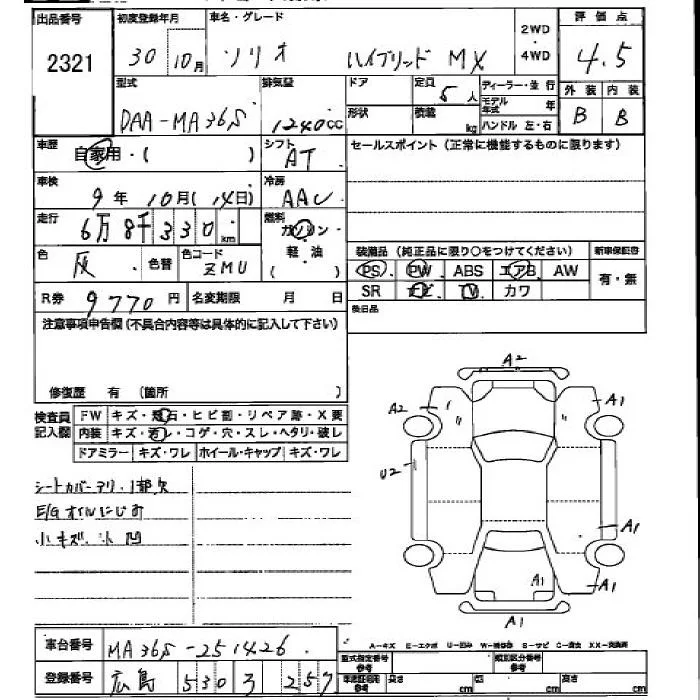 出品番号 2321
初度登録年月 30 10月
車名・グレード ソリオ ハイブリッド MX
2WD ・ 4WD
評価点 4.5
型式 DAA-MA36S
排気量 1240cc
ドア
形状
定員 5人
積載 kg
ディーラー・並行
モデル年式 年
ハンドル 左・右
外装 B
内装 B
車歴 自家用・( )
シフト AT
セールスポイント(正常に機能するものに限ります)
車検 9年 10月 (14日)
冷房 AAC
走行 6万 8千 3 3 0 km
燃料 ガソリン・軽油 ( )
色 灰 色替
色コード ZMU
装備品 (純正品に限り○をつけてください)
新車保証書 有・無
PS PW ABS エアB AW
SR ナビ TV カワ
R券 9770円
名変期限 月 日
後日品
注意事項申告欄(不具合内容等は具体的に記入して下さい)
修復歴 有 (箇所 )
検査員記入欄
FW キズ・飛石・ヒビ割・リペア跡・X要
内装 キズ・汚レ・コゲ・穴・スレ・ヘタリ・破レ
ドアミラー キズ・ワレ ホイール・キャップ キズ・ワレ
シートカバーアリ・1部欠
E/Gオイルにじみ
小キズ、小凹
A2
A2
A1
U2
A1
A1
A1
A1
車台番号 MA36S-251426
登録番号 広島 530 ス 257
A-キズ E-エクボ U-凹み W-補修跡 S-サビ C-腐食 XX-交換済
型式指定番号 参考
類別区分番号 参考
長さ cm 幅 cm 高さ cm